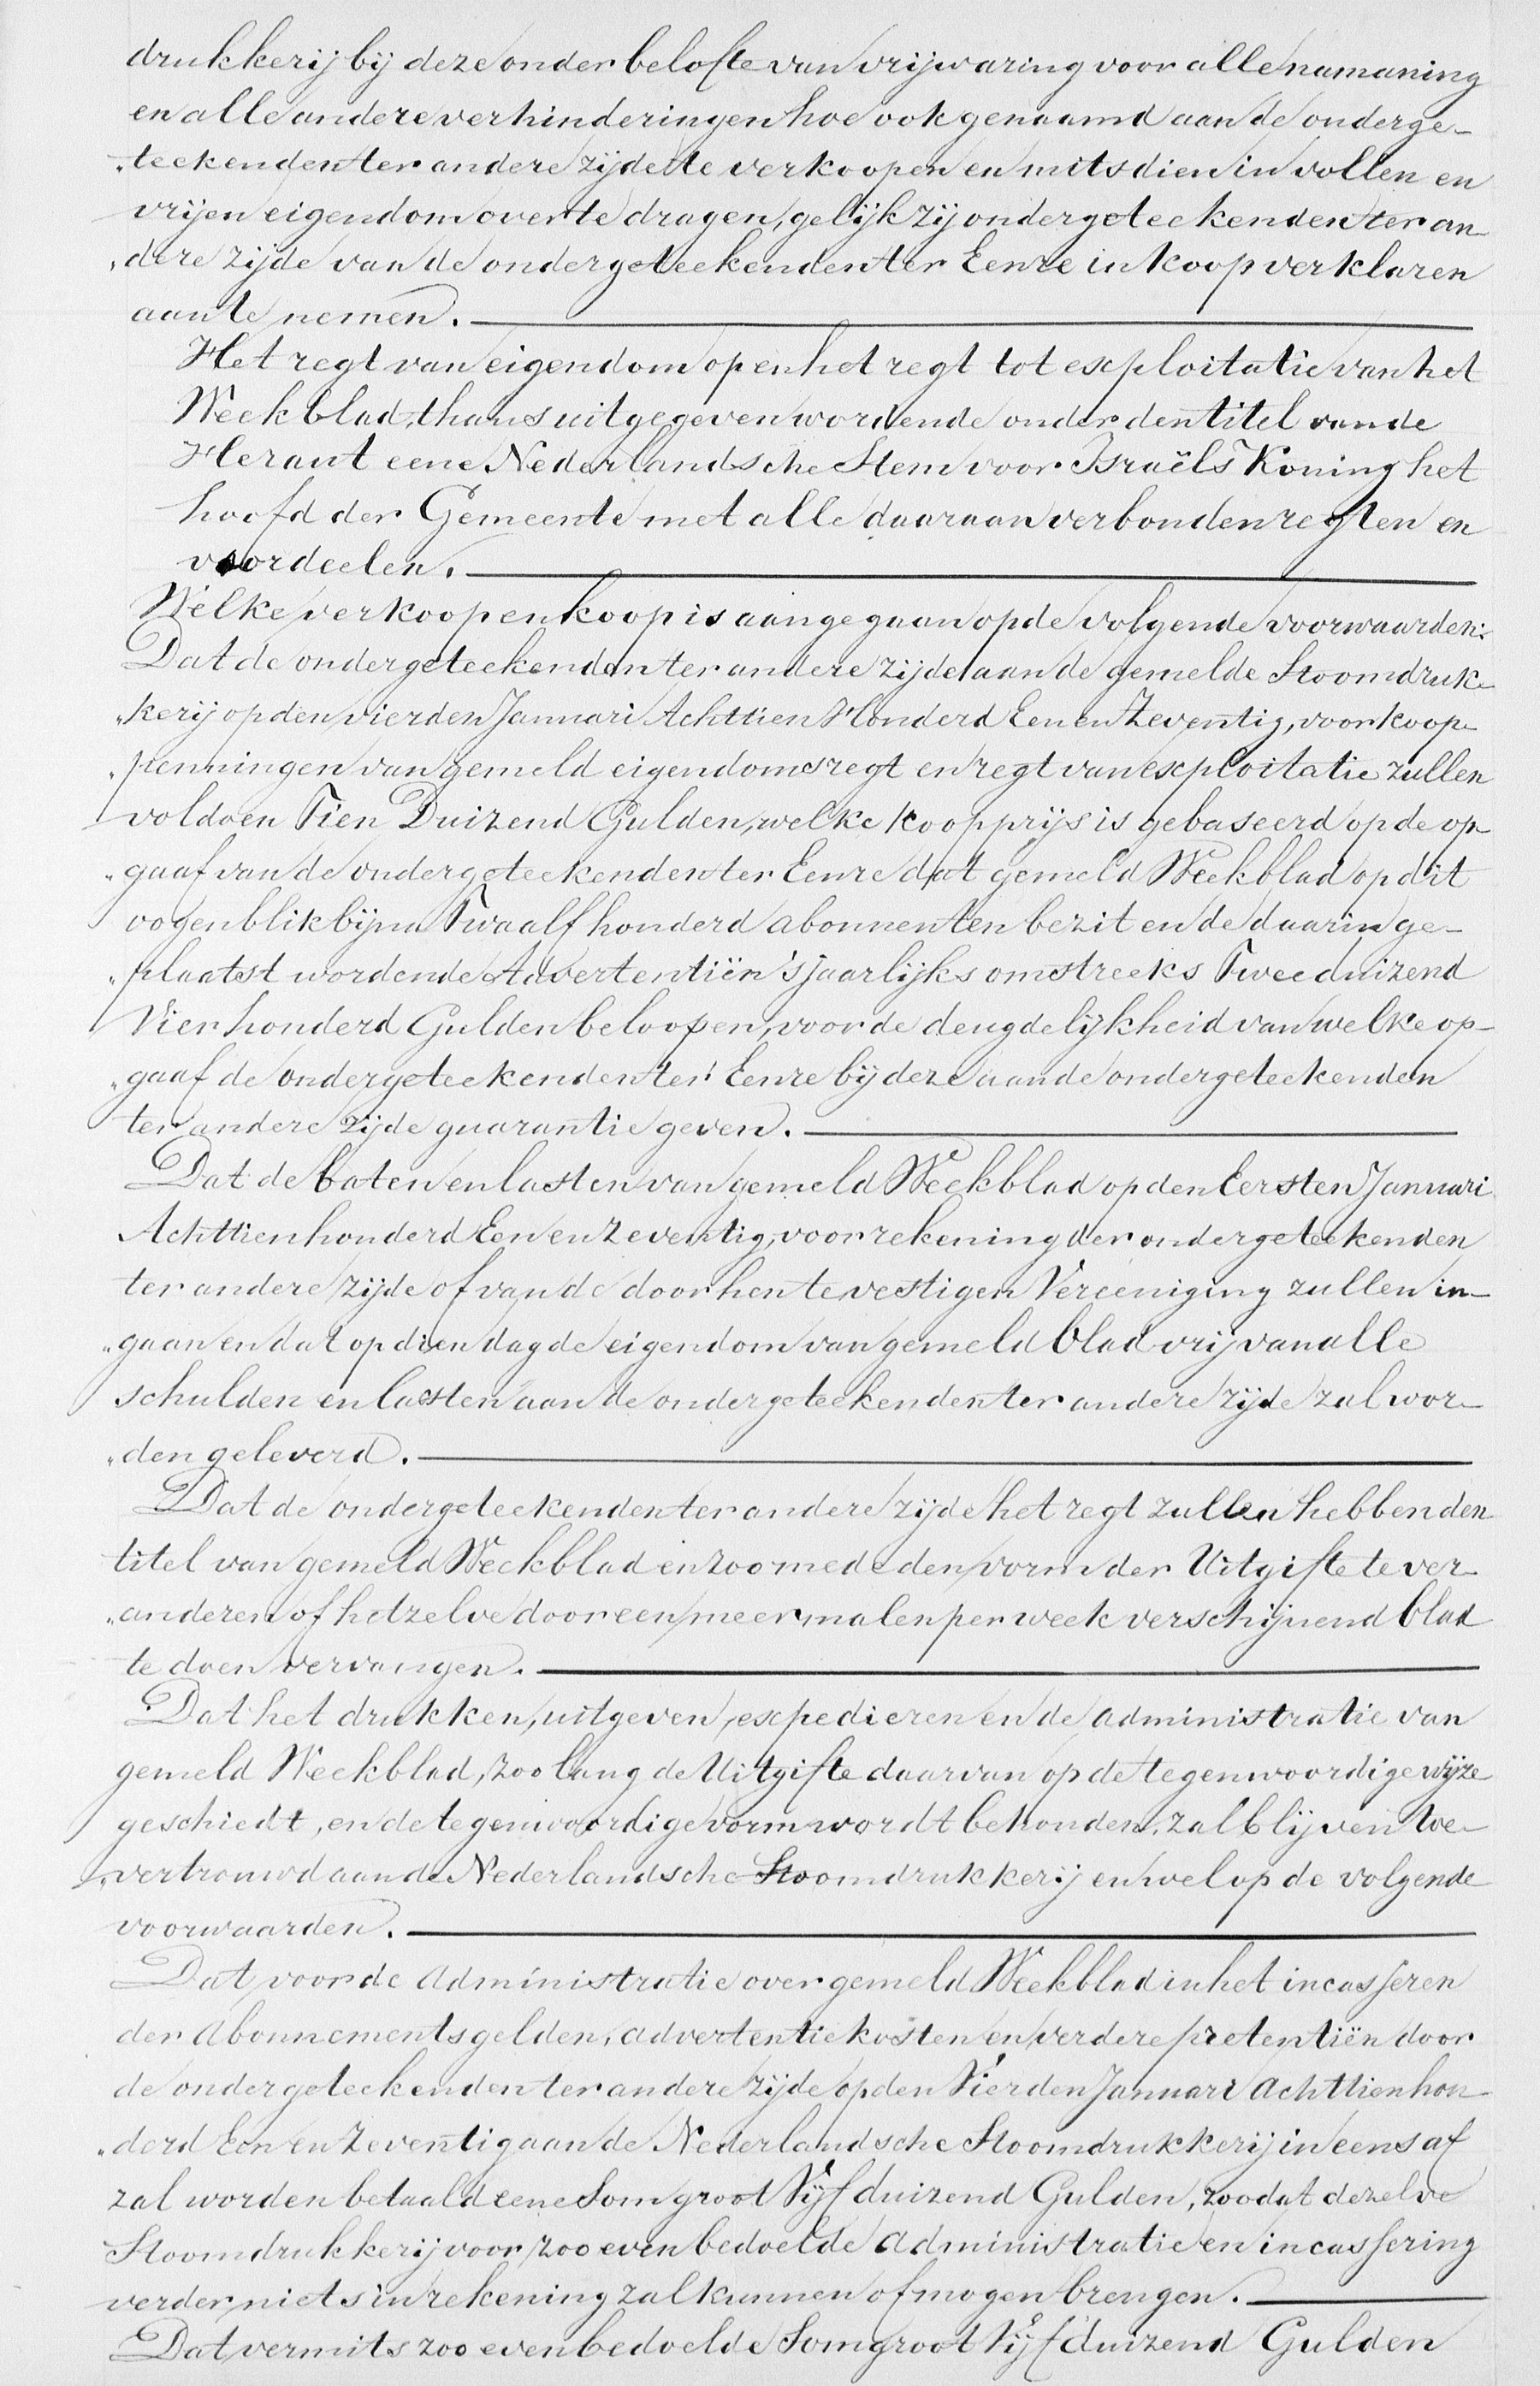 drukkerij bij deze onder belofte van vrijwaring voor alle namaning
en alle andere verhinderingen hoe ook genaamd aan de onderge-
„teekenden ter andere zijde te verkoopen en mitsdien in vollen en
vrijen eigendom over te dragen, gelijk zij ondergeteekenden ter an-
„dere zijde van de ondergeteekenden ter Eenre in koop verklaren
aan te nemen.
Het regt van eigendom op en het regt tot exploitatie van het
Weekblad, thans uitgegeven wordende onder den titel van de
Heraut eene Nederlandsche Stem voor Israëls Koning het
hoofd der Gemeente met alle daaraan verbonden regten en
voordeelen.
Welke verkoop en koop is aangegaan op de volgende voorwaarden:
Dat de ondergeteekenden ter andere zijde aan de gemelde Stoomdruk-
„kerij op den vierden Januari Achttien Honderd Een en Zeventig, voor koop-
„penningen van gemeld eigendomsregt en regt van exploitatie zullen
voldoen Tien Duizend Gulden, welke koopprijs is gebaseerd op de op-
„gaaf van de ondergeteekenden ter Eenre dat gemeld Weekblad op dit
oogenblik bijna Twaalf honderd abonnenten bezit en de daarin ge-
„plaatst wordende Advertentiën 's jaarlijks omstreeks Twee duizend
Vier honderd Gulden beloopen, voor de deugdelijkheid van welke op-
„gaaf de ondergeteekenden ter Eenre bij deze aan de ondergeteekenden
ter andere zijde guarantie geven.
Dat de baten en lasten van gemeld Weekblad op den Eersten Januari
Achttien honderd Een en zeventig, voor rekening der ondergeteekenden
ter andere zijde of van de door hen te vestigen Vereeniging zullen in-
„gaan en dat op dien dag de eigendom van gemeld blad vrij van alle
schulden en lasten aan de ondergeteekenden ter andere zijde zal wor-
„den geleverd.
Dat de ondergeteekenden ter andere zijde het regt zullen hebben den
titel van gemeld Weekblad en zoomede den vorm der Uitgifte te ver-
„anderen of hetzelve door een meermalen per week verschijnend blad
te doen vervangen.
Dat het drukken, uitgeven, expedieren en de administratie van
gemeld Weekblad, zoo lang de Uitgifte daarvan op de tegenwoordige wijze
geschiedt, en de tegenwoordige vorm wordt behouden, zal blijven toe-
„vertrouwd aan de Nederlandsche Stoomdrukkerij en wel op de volgende
voorwaarden.
Dat voor de administratie over gemeld Weekblad in het incasseren
der abonnementsgelden, advertentiekosten en verdere pretentiën door
de ondergeteekenden ter andere zijde op den Vierden Januari Achttienhon-
„derd Een en Zeventig aan de Nederlandsche Stoomdrukkerij in eens af
zal worden betaald eene Som groot Vijf duizend Gulden, zoodat dezelve
Stoomdrukkerij voor zoo even bedoelde administratie en incassering
verder niets in rekening zal kunnen of mogen brengen.
Dat vermits zoo even bedoelde Som groot Vijf duizend Gulden